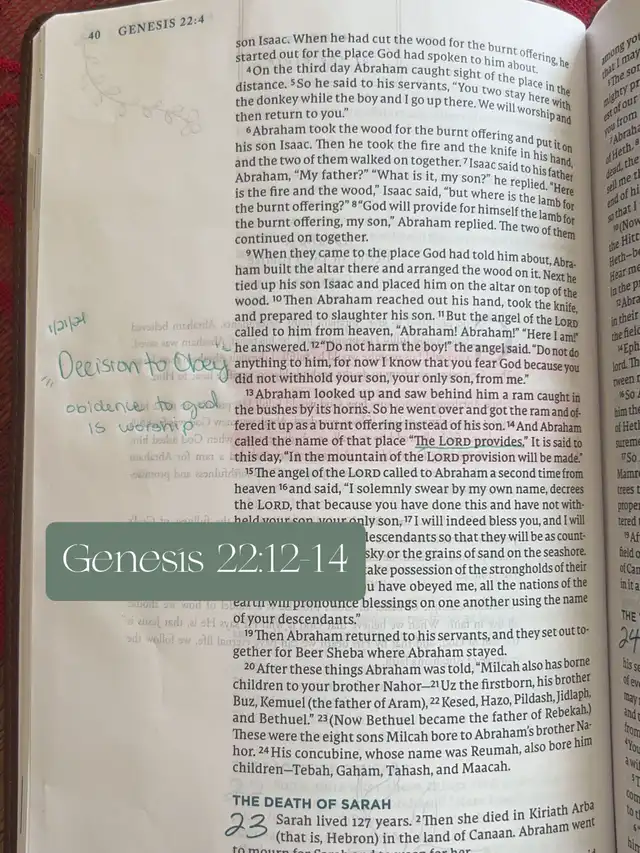 40 GENESIS 22:4
son Isaac. When he had cut the wood for the burnt offering, he
started out for the place God had spoken to him about.
4 On the third day Abraham caught sight of the place in the
distance. 5 So he said to his servants, “You two stay here with
the donkey while the boy and I go up there. We will worship and
then return to you.”
6 Abraham took the wood for the burnt offering and put it on
his son Isaac. Then he took the fire and the knife in his hand,
and the two of them walked on together. 7 Isaac said to his father
Abraham, “My father?” “What is it, my son?” he replied. “Here
is the fire and the wood,” Isaac said, “but where is the lamb for
the burnt offering?” 8 “God will provide for himself the lamb for
the burnt offering, my son,” Abraham replied. The two of them
continued on together.
9 When they came to the place God had told him about, Abra-
ham built the altar there and arranged the wood on it. Next he
tied up his son Isaac and placed him on the altar on top of the
wood. 10 Then Abraham reached out his hand, took the knife,
and prepared to slaughter his son. 11 But the angel of the LORD
called to him from heaven, “Abraham! Abraham!” “Here I am!”
he answered. 12 “Do not harm the boy!” the angel said. “Do not do
anything to him, for now I know that you fear God because you
did not withhold your son, your only son, from me.”
13 Abraham looked up and saw behind him a ram caught in
the bushes by its horns. So he went over and got the ram and of-
fered it up as a burnt offering instead of his son. 14 And Abraham
called the name of that place “The LORD provides.” It is said to
this day, “In the mountain of the LORD provision will be made.”
15 The angel of the LORD called to Abraham a second time from
heaven 16 and said, “I solemnly swear by my own name, decrees
the LORD, that because you have done this and have not with-
held your son, your only son, 17 I will indeed bless you, and I will
descendants so that they will be as count-
sky or the grains of sand on the seashore.
take possession of the strongholds of their
you have obeyed me, all the nations of the
earth will pronounce blessings on one another using the name
of your descendants.”
19 Then Abraham returned to his servants, and they set out to-
gether for Beer Sheba where Abraham stayed.
20 After these things Abraham was told, “Milcah also has borne
children to your brother Nahor—21 Uz the firstborn, his brother
Buz, Kemuel (the father of Aram), 22 Kesed, Hazo, Pildash, Jidlaph,
and Bethuel.” 23 (Now Bethuel became the father of Rebekah.)
These were the eight sons Milcah bore to Abraham’s brother Na-
hor. 24 His concubine, whose name was Reumah, also bore him
children—Tebah, Gaham, Tahash, and Maacah.
THE DEATH OF SARAH
23 Sarah lived 127 years. 2 Then she died in Kiriath Arba
(that is, Hebron) in the land of Canaan. Abraham went
to mourn for Sarah and to weep for her.
1/21/24
Decision to Obey
obidence to god
is worship
Genesis 22:12-14